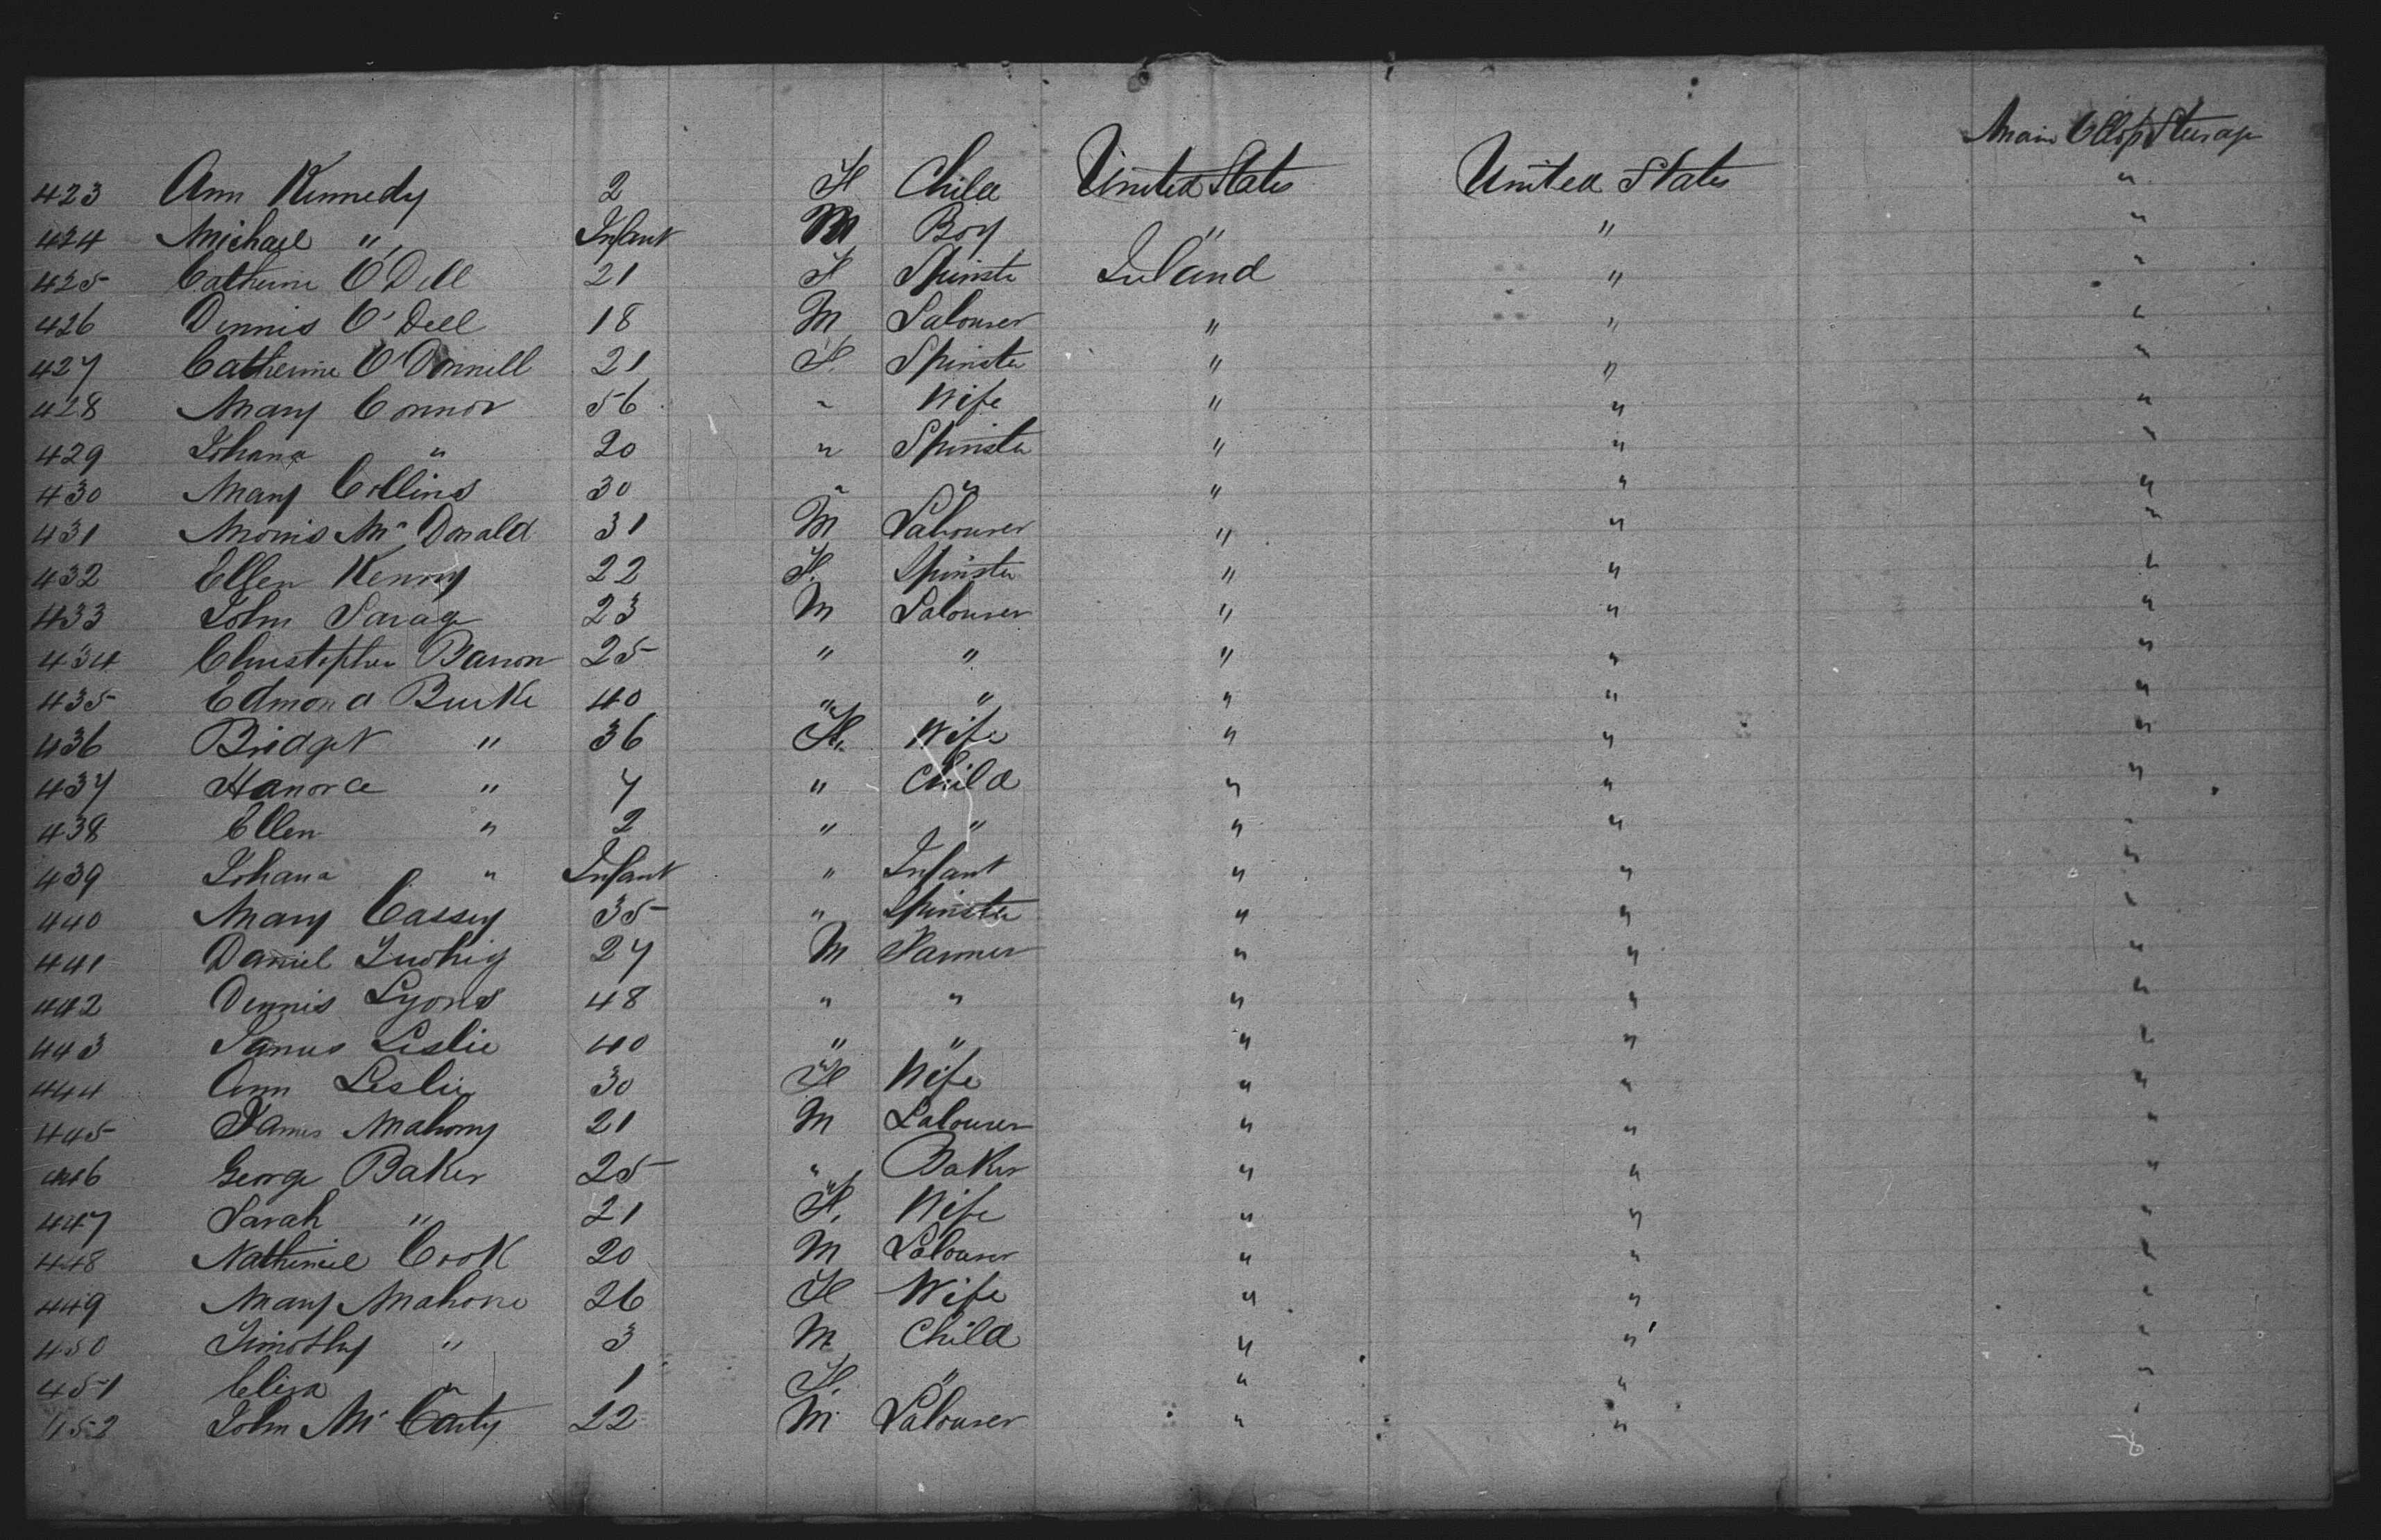 Main
423 Ann Kennedy 2 F Child United States United States "
424 Michael " Infant M Boy " " "
425 Catherine O'Dell 21 F Spinster Ireland " "
426 Dennis O'Dell 18 M Labourer " " "
427 Catherine O'Donnell 21 F. Spinster " " "
428 Mary Connor 56 " Wife " " "
429 Johana " 20 " Spinster " " "
430 Mary Collins 30 " " " " "
431 Morris Mc Donald 31 M Labourer " " "
432 Ellen Kenny 22 F. Spinster " " "
433 John Savage 23 M Labourer " " "
434 Christopher Barron 25 " " " " "
435 Edmond Burke 40 " " " " "
436 Bridget " 36 F. Wife " " "
437 Hanora " 7 " Child " " "
438 Ellen " 2 " " " " "
439 Johana " Infant " Infant " " "
440 Mary Cassey 35 " Spinster " " "
441 Daniel 27 M Farmer " " "
442 Dennis Lyons 48 " " " " "
443 James Leslie 40 " " " " "
444 Ann Leslie 30 F Wife " " "
445 James Mahony 21 M Labourer " " "
446 George Baker 25 " Baker " " "
447 Sarah " 21 F. Wife " " "
448 Nathaniel Cook 20 M Labourer " " "
449 Mary Mahone 26 F Wife " " "
450 Timothy " 3 M Child " " "
451 Eliza " 1 F. " " " "
452 John Mc Carty 22 M. Labourer " " "